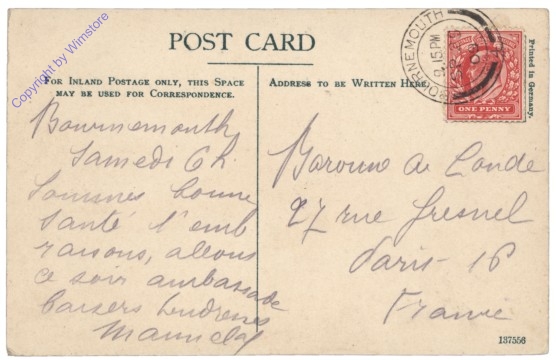 Copyright by Wimstore
POST CARD
FOR INLAND POSTAGE ONLY, THIS SPACE
MAY BE USED FOR CORRESPONDENCE.
ADDRESS TO BE WRITTEN HERE.
BOURNEMOUTH
9.15PM
ONE PENNY
Printed in Germany.
Bournemouth
Samedi 6h.
Sommes bonne
santé
allons
ce soir ambassade
Baisers tendresses
Baronne de
27 rue Fresnel
Paris - 16
France
137556